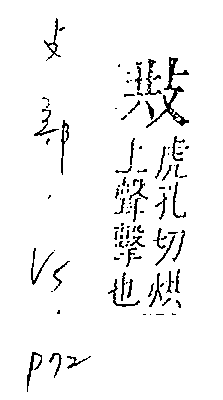 虎孔切烘
上聲擊也
攴部.V5.P72